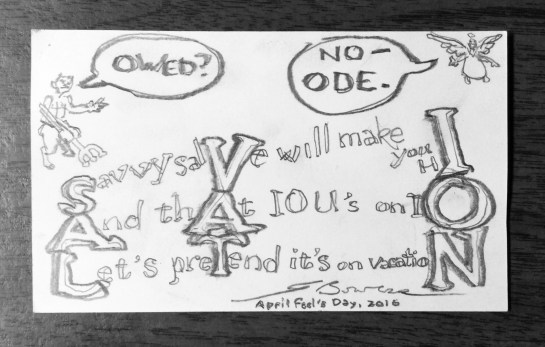 OWED?
NO-
ODE.
Savvy salVe will make
you
HI
And thAt IOU's on
Let's preTend it's on vacatioN
April Fool's Day, 2016